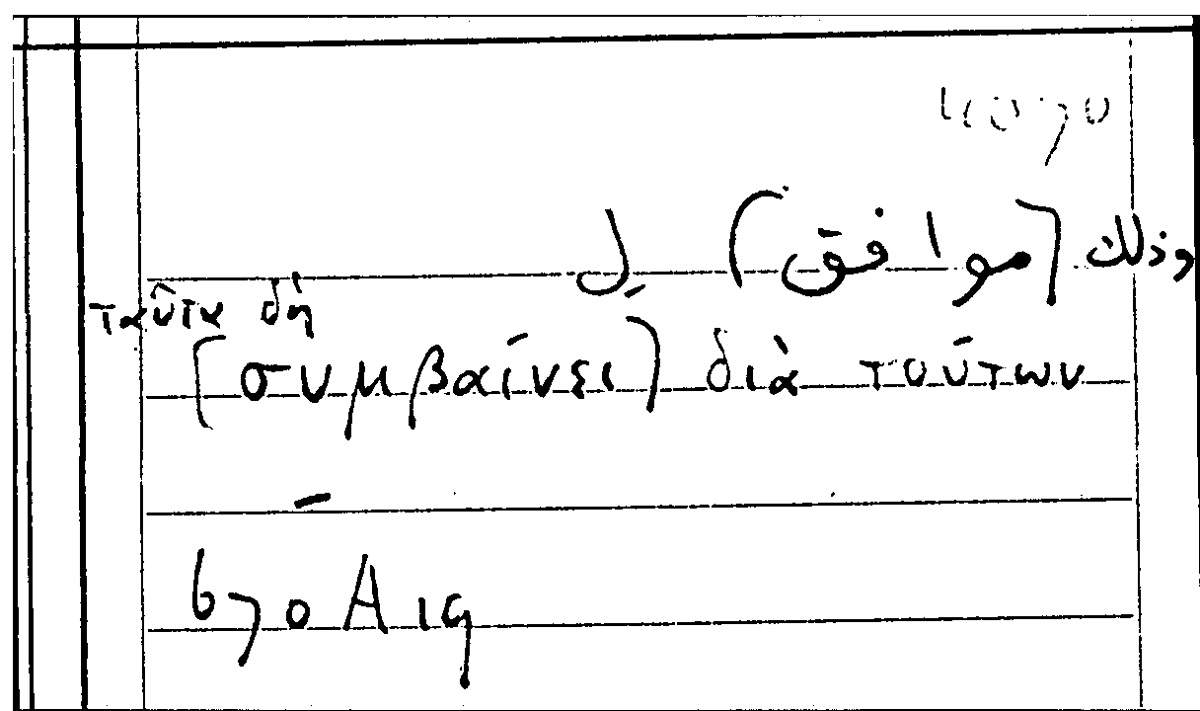 وذلك [موافق] ل
ταῦτα δὴ
[συμβαίνει] διὰ τούτων
670 A 19